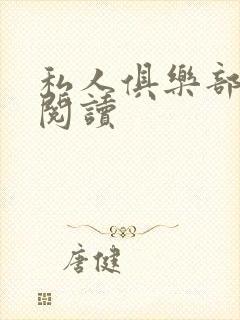 私人俱樂部
閱讀
唐健